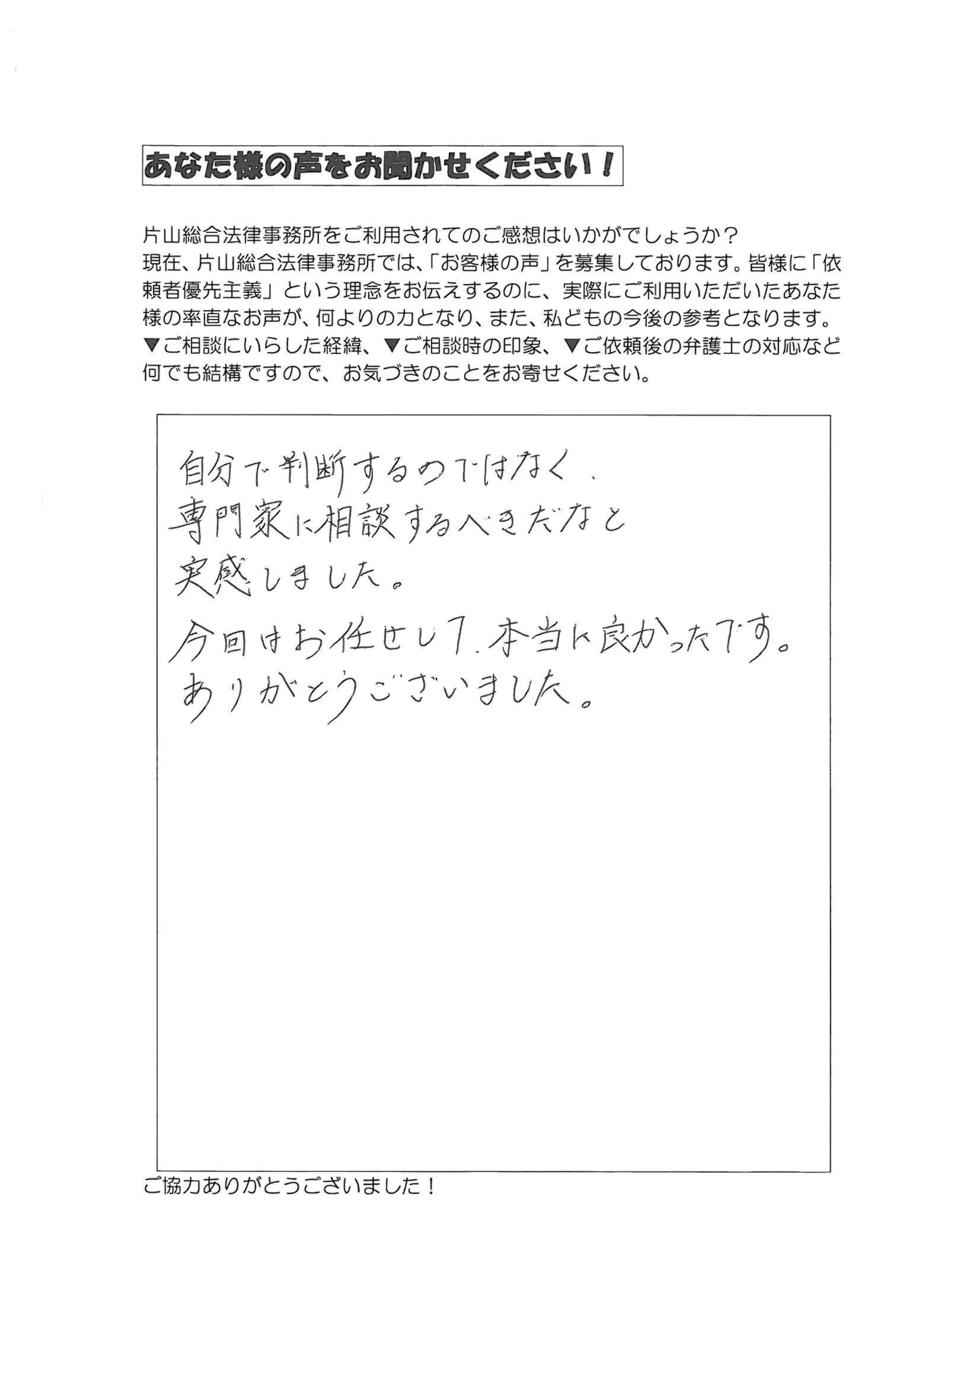 あなた様の声をお聞かせください！
片山総合法律事務所をご利用されてのご感想はいかがでしょうか？
現在、片山総合法律事務所では、「お客様の声」を募集しております。皆様に「依
頼者優先主義」という理念をお伝えするのに、実際にご利用いただいたあなた
様の率直なお声が、何よりの力となり、また、私どもの今後の参考となります。
▼ご相談にいらした経緯、▼ご相談時の印象、▼ご依頼後の弁護士の対応など
何でも結構ですので、お気づきのことをお寄せください。
自分で判断するのではなく、
専門家に相談するべきだなと
実感しました。
今回はお任せして、本当に良かったです。
ありがとうございました。
ご協力ありがとうございました！